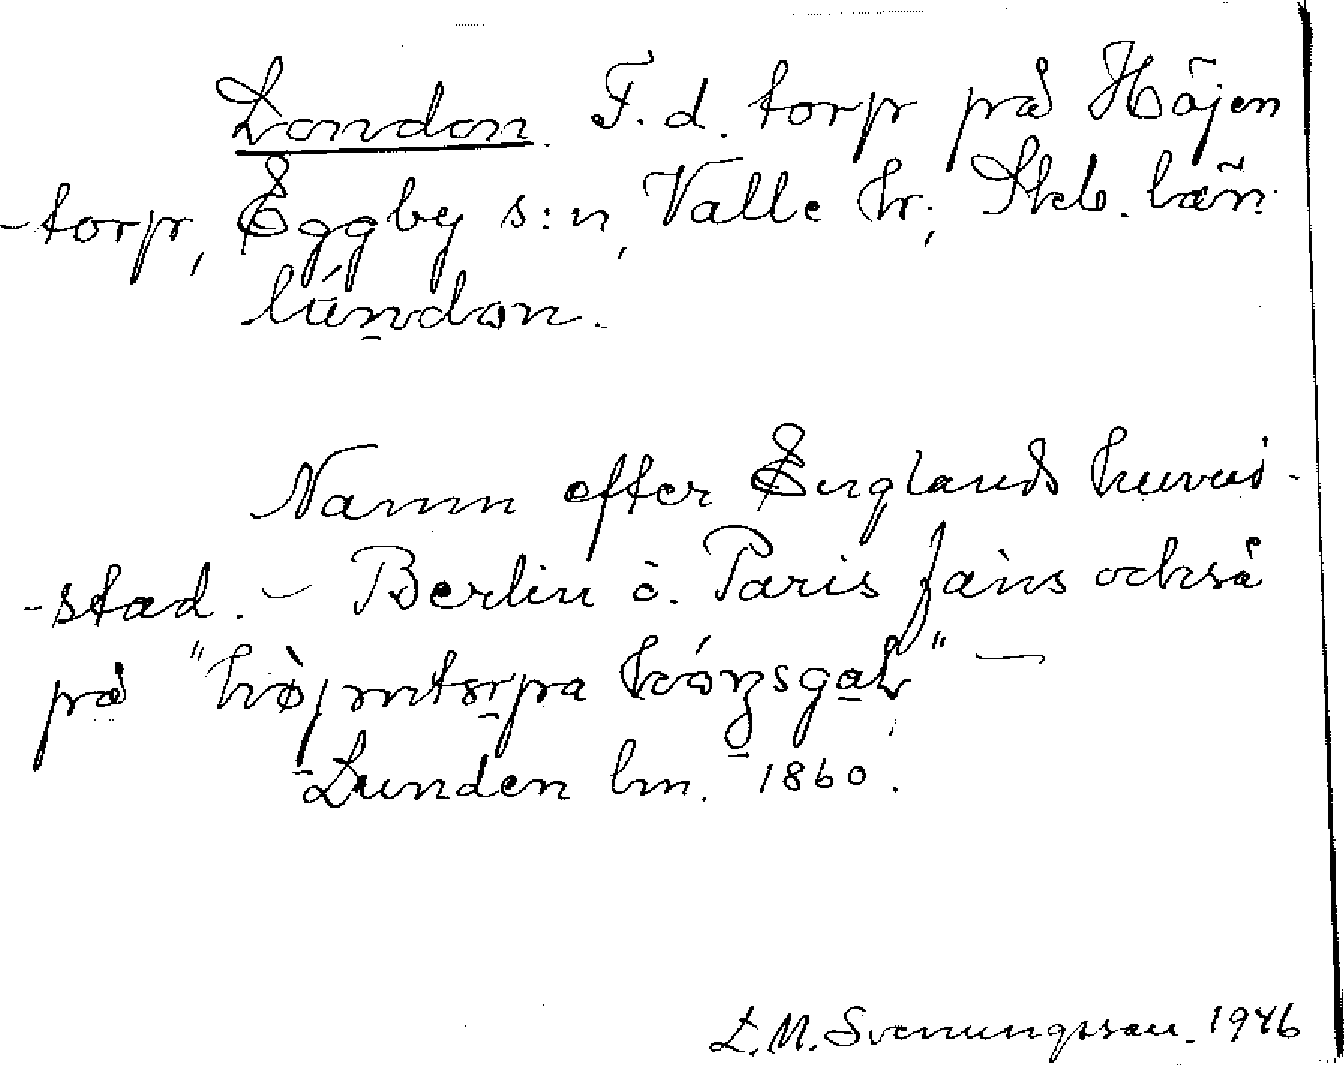 London. F. d. torp på Höjen
-torp, Eggby s:n, Valle hr, Skb. län.
lúndon.
Namn efter Englands huvud-
-stad. – Berlin o. Paris fanns också
på " " –
Lunden lm. 1860.
L. M. Svenungsson. 1946